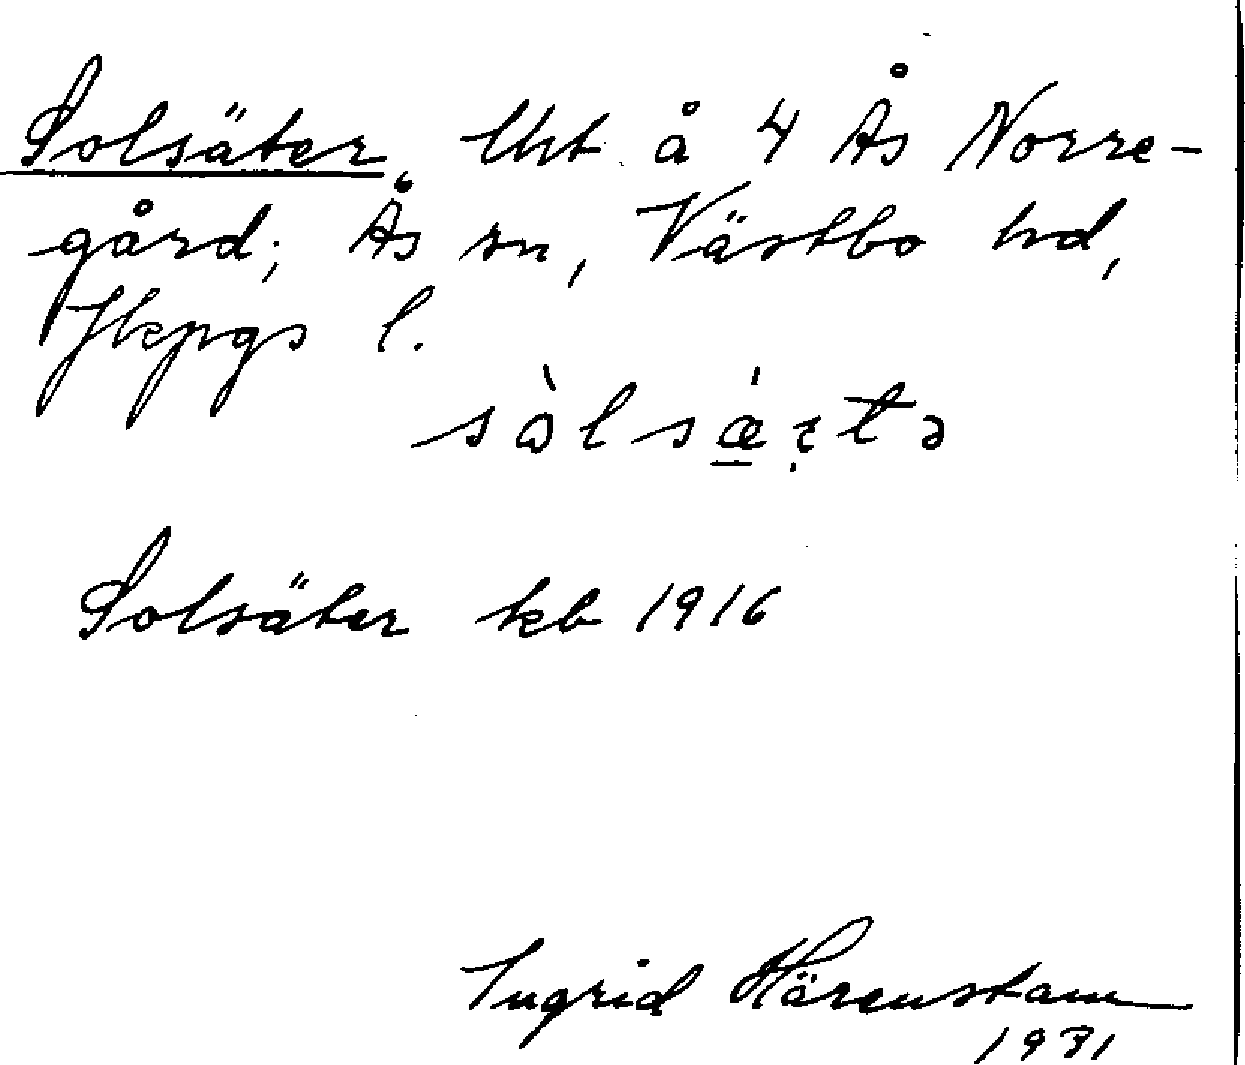 Solsäter, lht å 4 Ås Norre-
gård; Ås sn, Västbo hd,
Jkpgs l.
Solsäter kb 1916
Ingrid Härenstam
1931